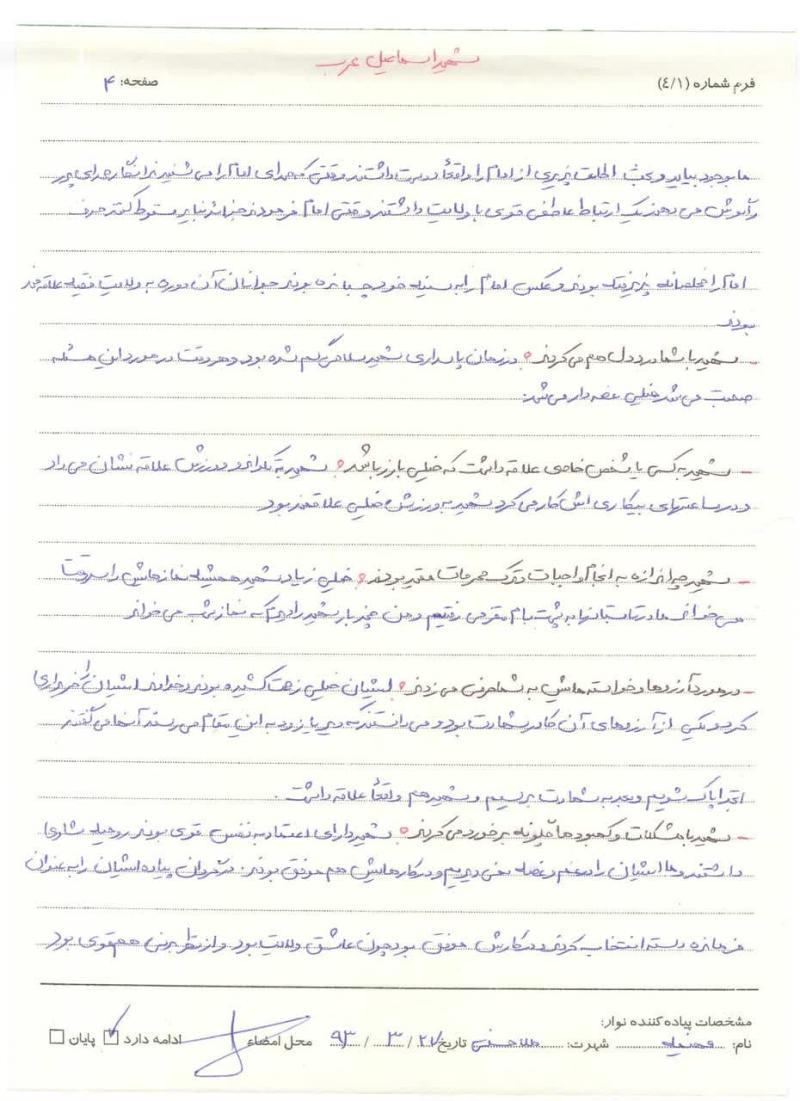 شهید اسماعیل عرب
فرم شماره (٤/١)
صفحه: ۴
ما بوجود بیاید و بحث الطلعت پذیری از امام را واقعاً دوست داشتند وقتی که صدای امام را می شنیدند انگار صدای پدر
را گوش می دهند یک ارتباط عاطفی قوی با ولایت داشتند وقتی امام فرمودند جزائر نباید سقوط کند حرف
امام را مخلصانه پذیرفته بودند و عکس امام را به سینه خود چسبانده بودند جوانان آن دوره به ولایت فقیه علاقه مند
بودند
- شهید با شما درد دل هم می کردند؟ در زمان پاسداری شهید سلاح گم شده بود و هر وقت در مورد این مسئله
صحبت می شد خیلی غصه دار می شد.
- شهید به کسی یا شخص خاصی علاقه داشت که خیلی بارز باشد؟ شهید به تکواندو و ورزش علاقه نشان می داد
و در ساعتهای بیکاری اش کار می کرد شهید به ورزش خیلی علاقمند بود
- شهید چه اندازه به انجام واجبات و ترک محرمات مقید بودند؟ خیلی زیاد شهید همیشه نمازهایش را سر وقت
می خواند ما در تابستانها به پشت بام مقر می رفتیم و من چند بار شهید را دیدم که نماز شب می خواند
- در مورد آرزوها و خواسته هایش به شما حرفی می زدند؟ ایشان خیلی زحمت کشیده بودند و خداوند ایشان را خریداری
کرد و یکی از آرزوهای آن کادر شهادت بود و می دانستند که دیر یا زود به این مقام می رسند آنها می گفتند
ابتدا پاک شویم و بعد به شهادت برسیم و شهید هم واقعاً علاقه داشت.
- شهید با مشکلات و کمبودها چگونه برخورد می کردند؟ شهید دارای اعتماد به نفس قوی بودند روحیه شادی
داشتند و ما ایشان را در غم و غصه نمی دیدیم و در کارهایش هم موفق بودند. در گردان پیاده ایشان را به عنوان
فرمانده دسته انتخاب کردند و در کارش موفق بود چون عاشق ولایت بود و از نظر بدنی هم قوی بود
مشخصات پیاده کننده نوار:
نام: فهیمه شهرت: ملاحسنی تاریخ ۲۷ / ۳ / ۹۳ محل امضاء ادامه دارد پایان